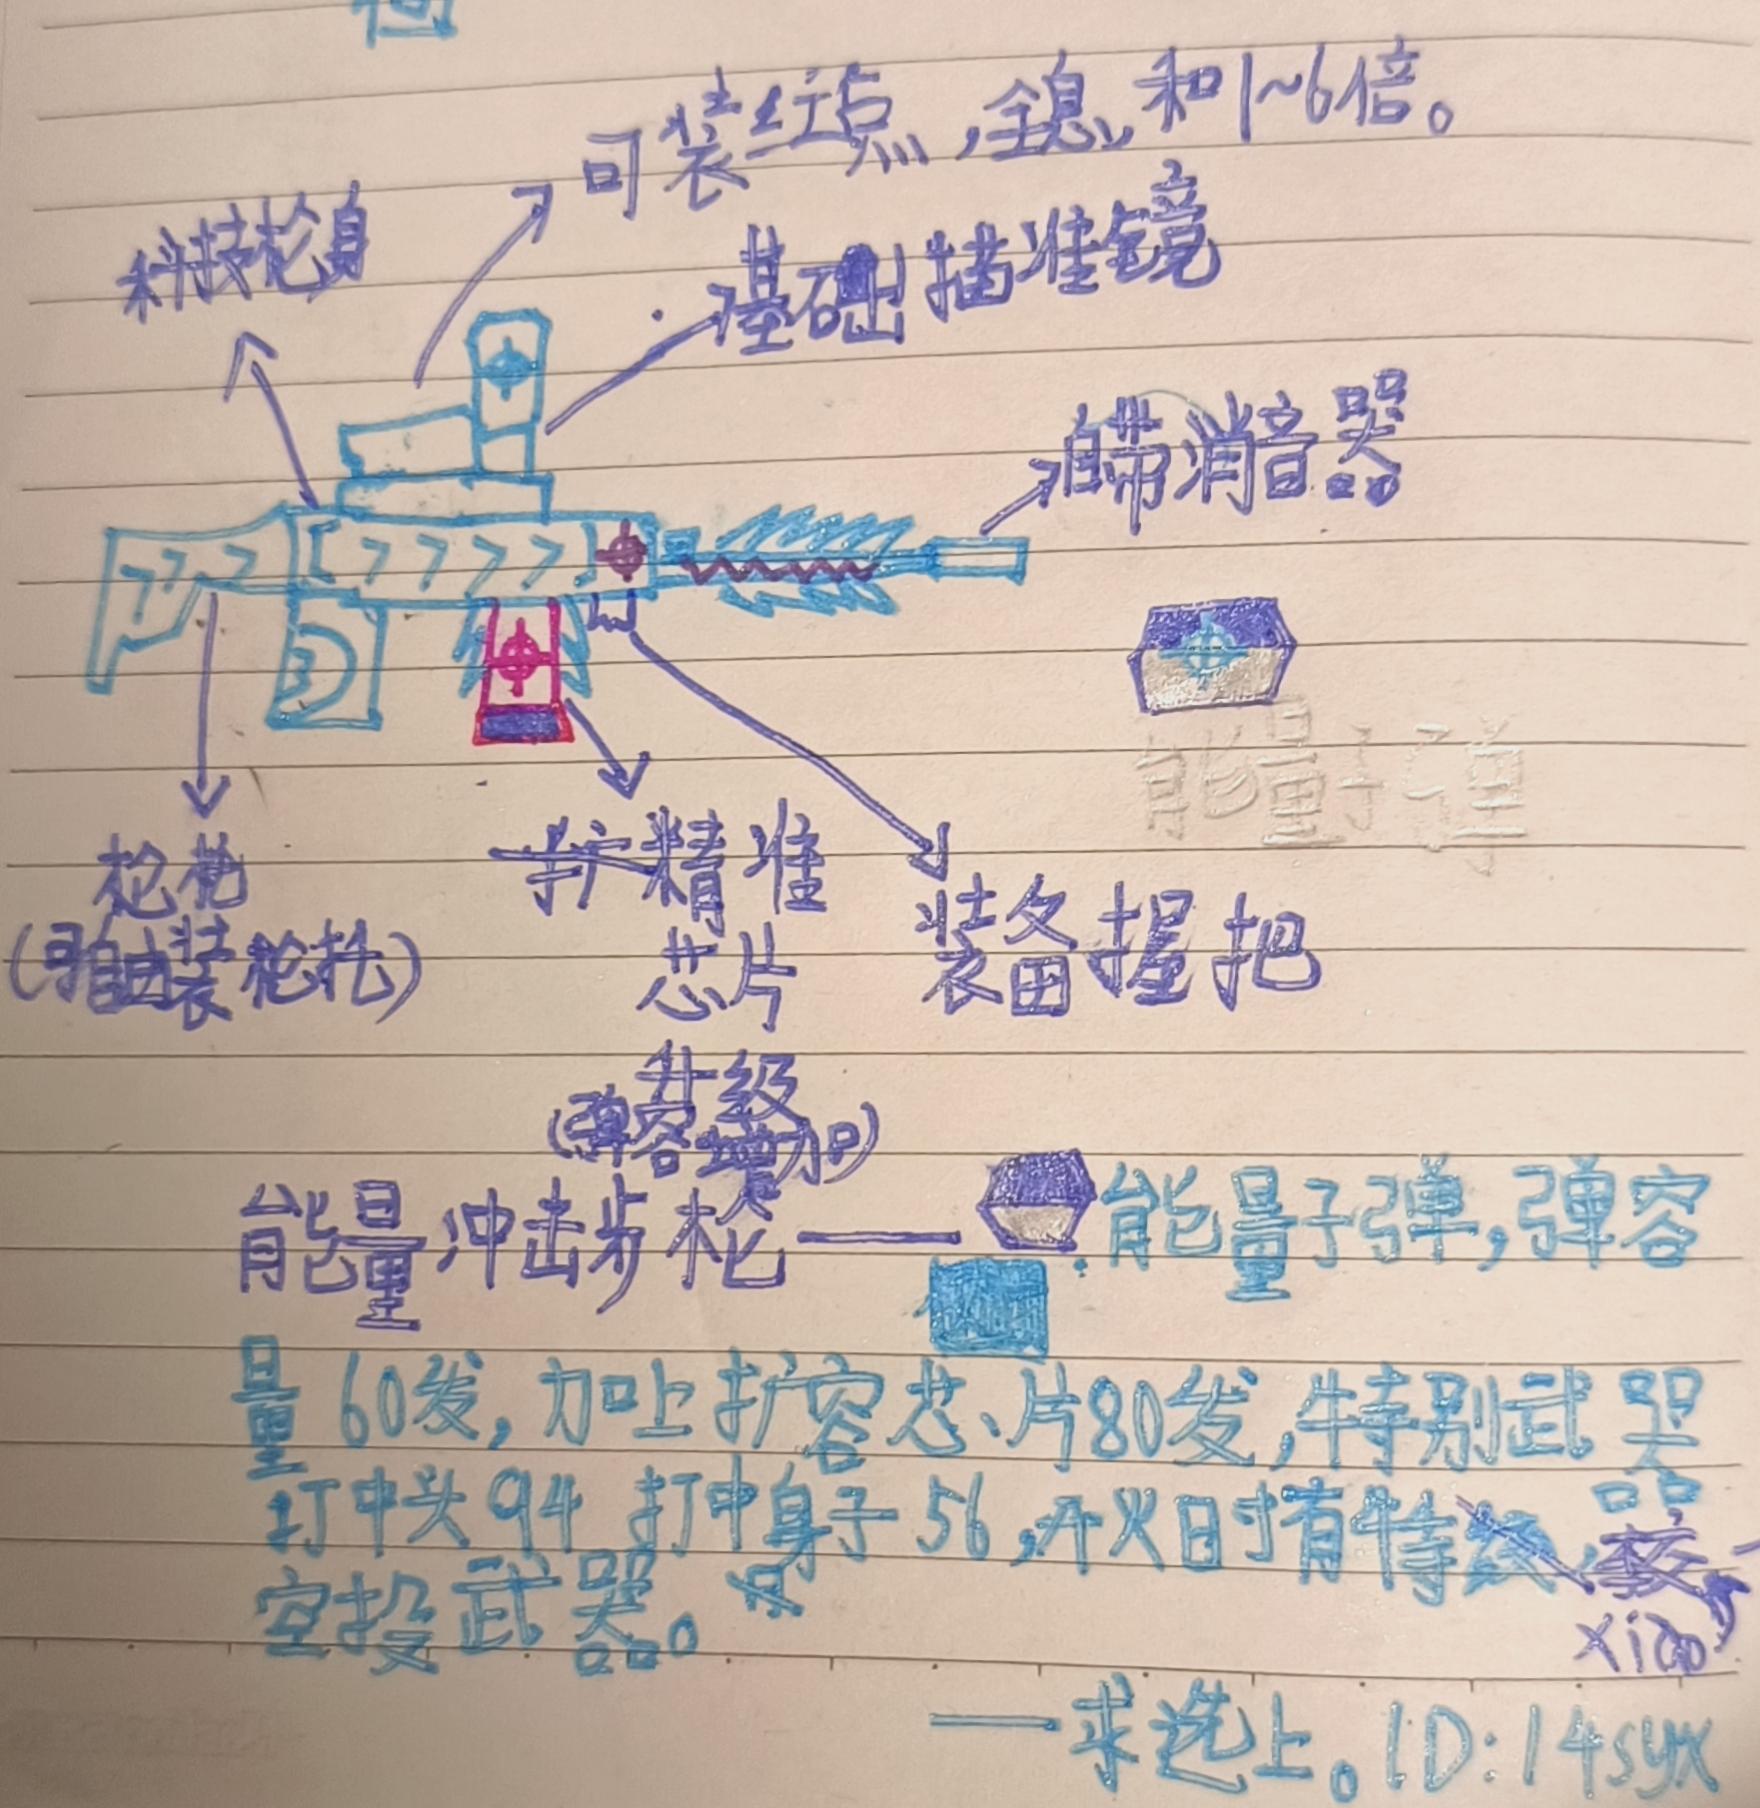 可装红点,全息,和1~6倍。
科技枪身
基础描准镜
自带消音器
能量子弹
枪枪
(可自由装枪托)
扩精准
芯片
升级
(弹容增加)
装备握把
能量冲击步枪——能量子弹,弹容
量60发,加上扩容芯片80发,特别武器
打中头94 打中身子56,开火时有特
xiao
空投武器。
——求选上。ID:14syx